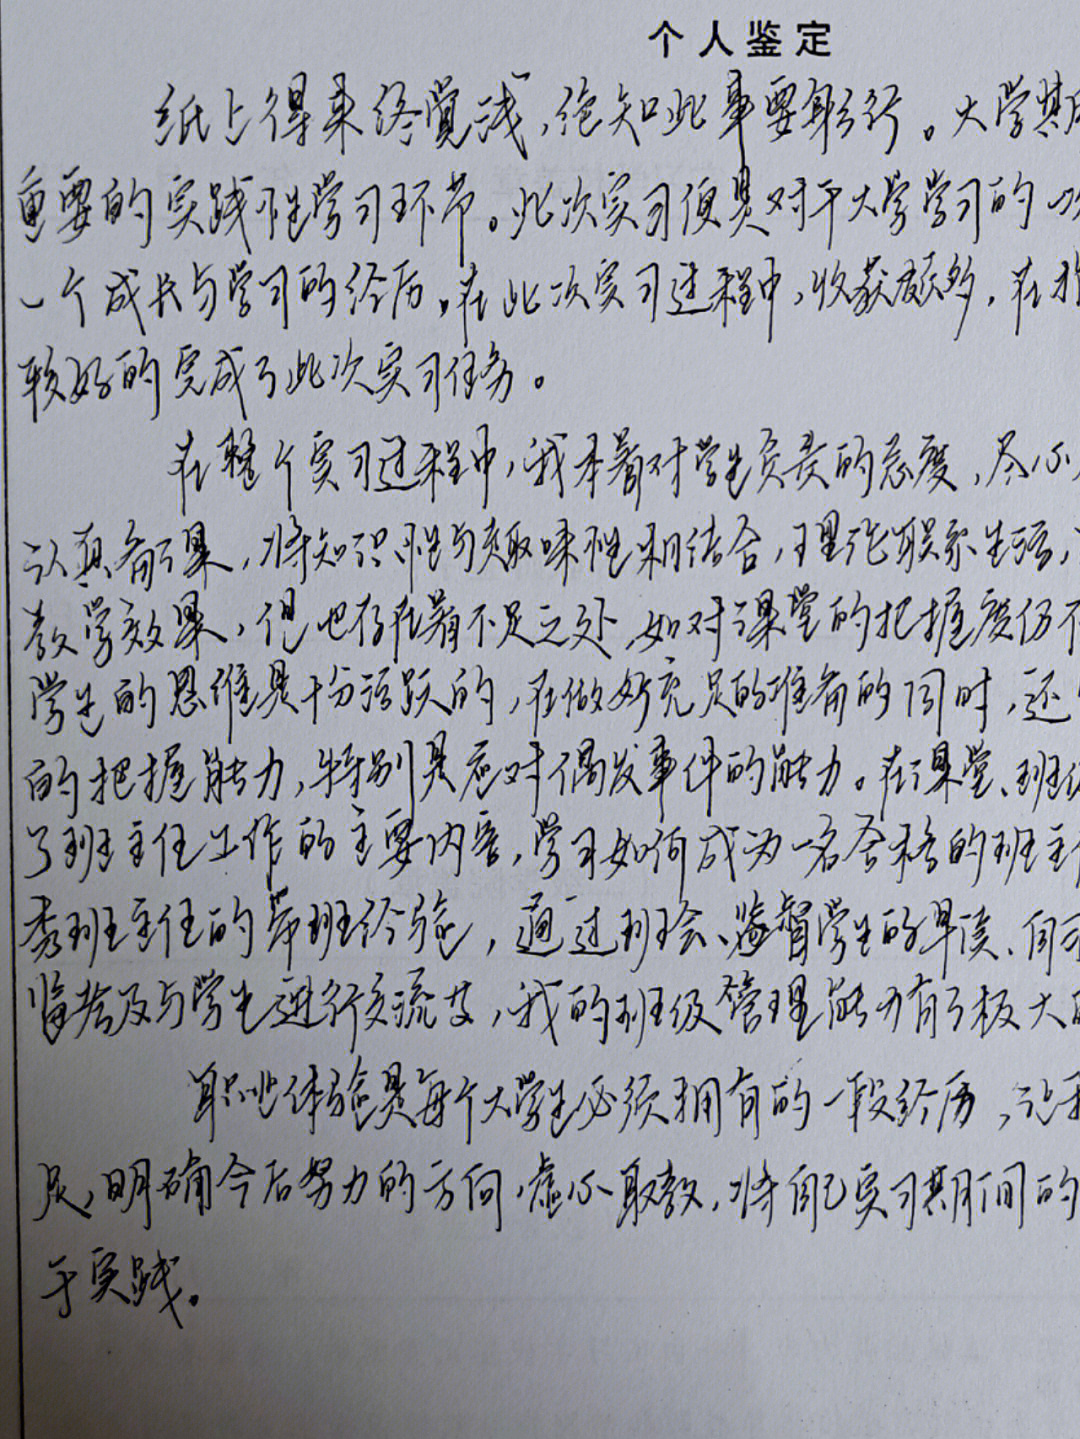 个人鉴定
纸上得来终觉浅,绝知此事要躬行。大学期
重要的实践性学习环节。此次实习便是对于大学学习的一次
一个成长与学习的经历,在此次实习过程中,收获颇多,在
较好的完成了此次实习任务。
在整个实习过程中,我本着对学生负责的态度,尽心
认真备课,将知识性与趣味性相结合,理论联系生活,
教学效果,但也存在着不足之处,如对课堂的把握度仍
学生的思维是十分活跃的,在做好充足的准备的同时,还
的把握能力,特别是应对偶发事件的能力。在课堂、班
了班主任工作的主要内容,学习如何成为一名合格的班主
秀班主任的带班经验,通过班会、监督学生的早读、自
监考及与学生进行交流等,我的班级管理能力有了极大
职业体验是每个大学生必须拥有的一段经历,让我
足,明确今后努力的方向,虚心取教,将自己实习期间的
于实践。